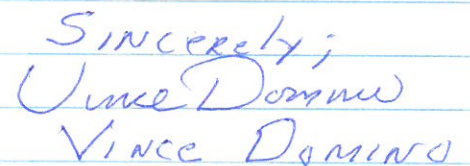 Sincerely;
Vince Domino
Vince Domino